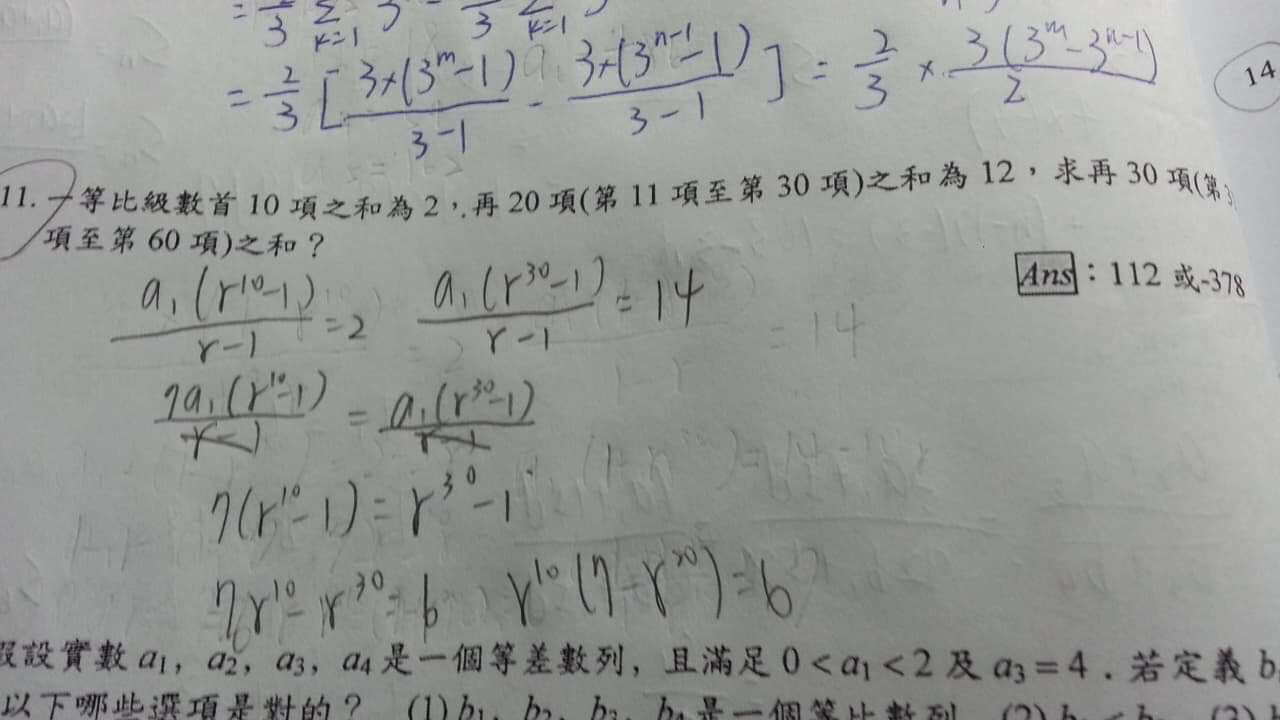 = 2/3 [ 3×(3^m-1) / 3-1 - 3×(3^(n-1)-1) / 3-1 ] = 2/3 × 3(3^m-3^(n-1)) / 2
14
11. 一等比級數首 10 項之和為 2，再 20 項(第 11 項至第 30 項)之和為 12，求再 30 項(第
項至第 60 項)之和？
Ans：112 或-378
a₁(r^10-1) / r-1 = 2 a₁(r^30-1) / r-1 = 14
7a₁(r^10-1) / r-1 = a₁(r^30-1) / r-1
7(r^10-1) = r^30-1
7r^10-r^30=6 r^10(7-r^20)=6
設實數 a₁，a₂，a₃，a₄ 是一個等差數列，且滿足 0<a₁<2 及 a₃=4．若定義 b
以下哪些選項是對的？ (1) b₁，b₂，b₃，b₄ 是一個等比數列